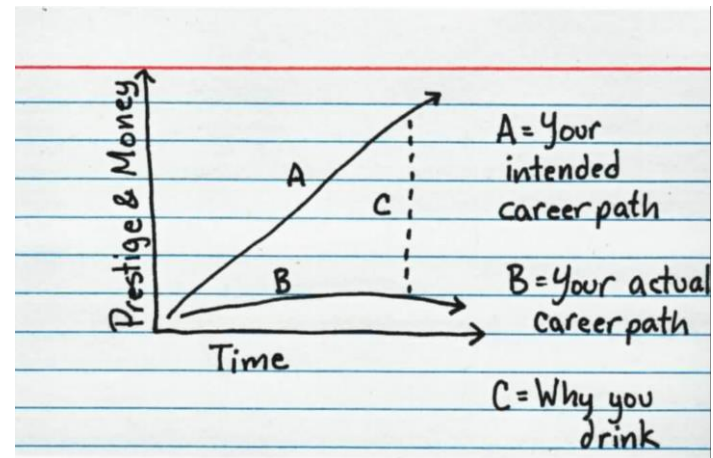 Prestige & Money
A
C
B
Time
A = Your
intended
career path
B = Your actual
career path
C = Why you
drink